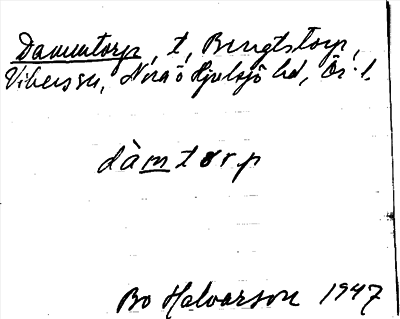 Dammtorp, t, Bengtstorp,
Viberssu, Nora o Hjulsjö hd, Ör. l.
dàmtorp
Bo Halvarson 1947